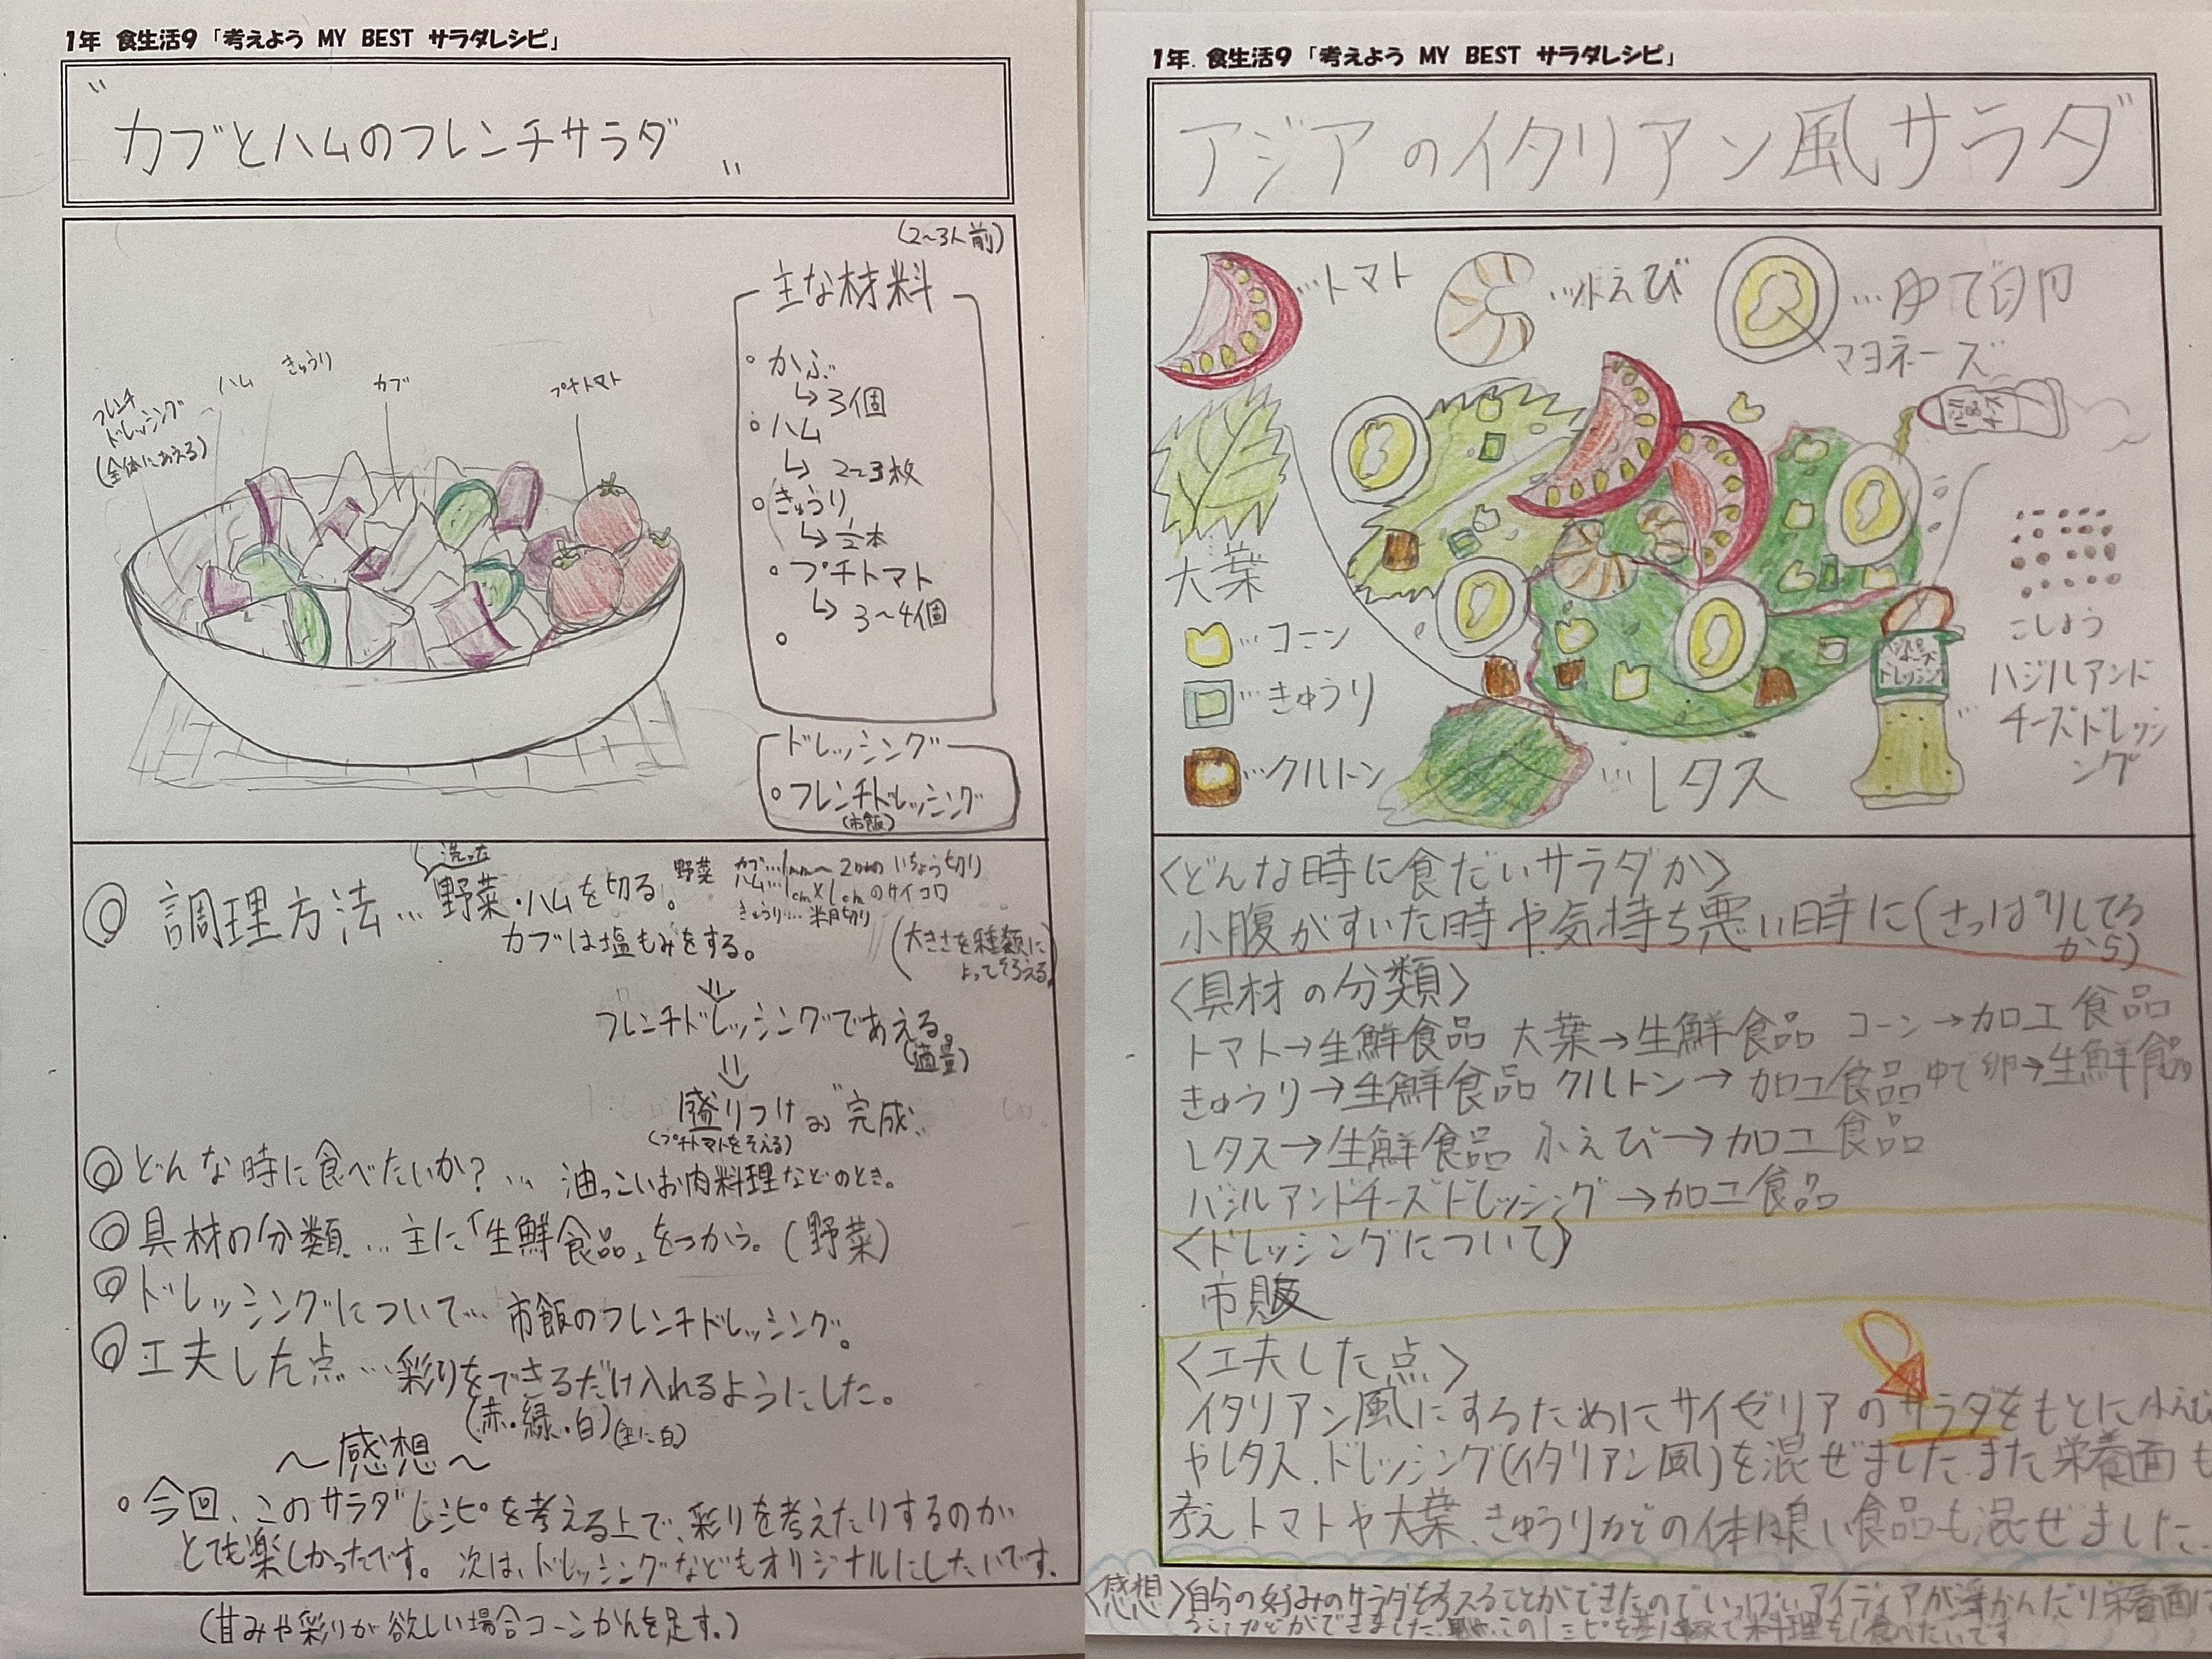 1年 食生活9 「考えよう MY BEST サラダレシピ」
〝カブとハムのフレンチサラダ〟
(2〜3人前)
主な材料
。かぶ
↳ 3個
。ハム
↳ 2〜3枚
。きゅうり
↳ 1/2本
。プチトマト
↳ 3〜4個
。
ドレッシング
。フレンチドレッシング
(市飯)
フレンチ
ドレッシング
(全体にあえる)
ハム
きゅうり
カブ
プチトマト
◎ 調理方法…洗った野菜・ハムを切る。
野菜 カブ…1mm〜2mmのいちょう切り
ハム…1cm×1cmのサイコロ
きゅうり…半月切り
カブは塩もみをする。
(大きさを種類に
よってそろえる)
⇓
フレンチドレッシングであえる。
(適量)
⇓
盛りつけ 完成
(プチトマトをそえる)
◎ どんな時に食べたいか?… 油っこいお肉料理などのとき。
◎ 具材の分類…主に「生鮮食品」をつかう。(野菜)
◎ ドレッシングについて…市飯のフレンチドレッシング。
◎ 工夫した点…彩りをできるだけ入れるようにした。
(赤・緑・白)(主に白)
〜感想〜
。今回、このサラダレシピを考える上で、彩りを考えたりするのが
とても楽しかったです。次は、ドレッシングなどもオリジナルにしたいです。
(甘みや彩りが欲しい場合コーンかんを足す。)
1年. 食生活9 「考えよう MY BEST サラダレシピ」
アジアのイタリアン風サラダ
…トマト
…小えび
…ゆで卵
マヨネーズ
大葉
…コーン
…きゅうり
…クルトン
…レタス
こしょう
バジルアンド
チーズドレッシ
ング
<どんな時に食だいサラダか>
小腹がすいた時や気持ち悪い時に(さっぱりしてる
から)
<具材の分類>
トマト→生鮮食品 大葉→生鮮食品 コーン→加工食品
きゅうり→生鮮食品 クルトン→加工食品 ゆで卵→生鮮食品
レタス→生鮮食品 小えび→加工食品
バジルアンドチーズドレッシング→加工食品
<ドレッシングについて>
市販
<工夫した点>
イタリアン風にするためにサイゼリアのサラダをもとに小えび
やレタス、ドレッシング(イタリアン風)を混ぜました。また栄養面も
考え、トマトや大葉、きゅうりなどの体に良い食品も混ぜました。
<感想>自分の好みのサラダを考えることができたのでいっぱいアイディアが浮かんだり栄養面に
このレシピを基に 料理をし食べたいです